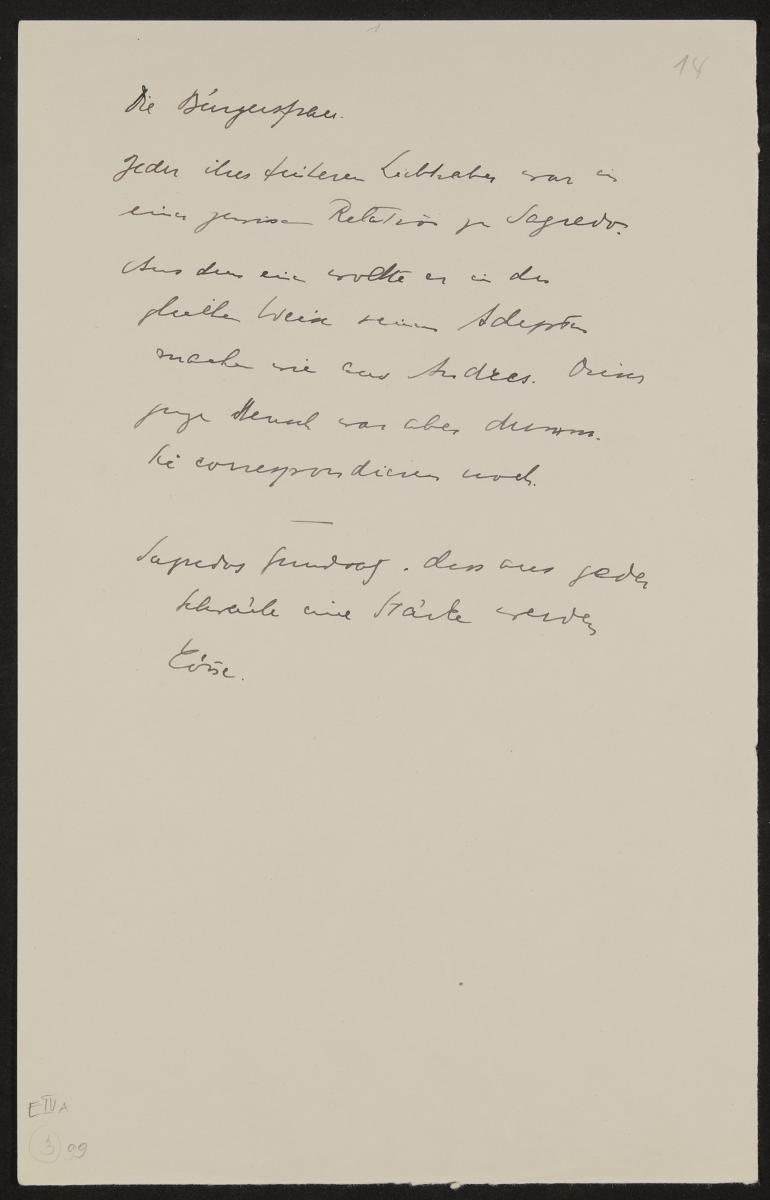 14
Die Bürgersfrau.
Jeder ihrer früheren Liebhaber war in
einer gewissen Relation zu Sagredo.
Aus dem einen wollte er in der
gleichen Weise seinen Adepten
machen wie aus Andres. Dieser
junge Mensch war aber dumm.
Sie correspondieren noch.
Sagredos Grundsatz. dass aus jeder
Schwäche eine Stärke werden
könne.
E IV A
3 99